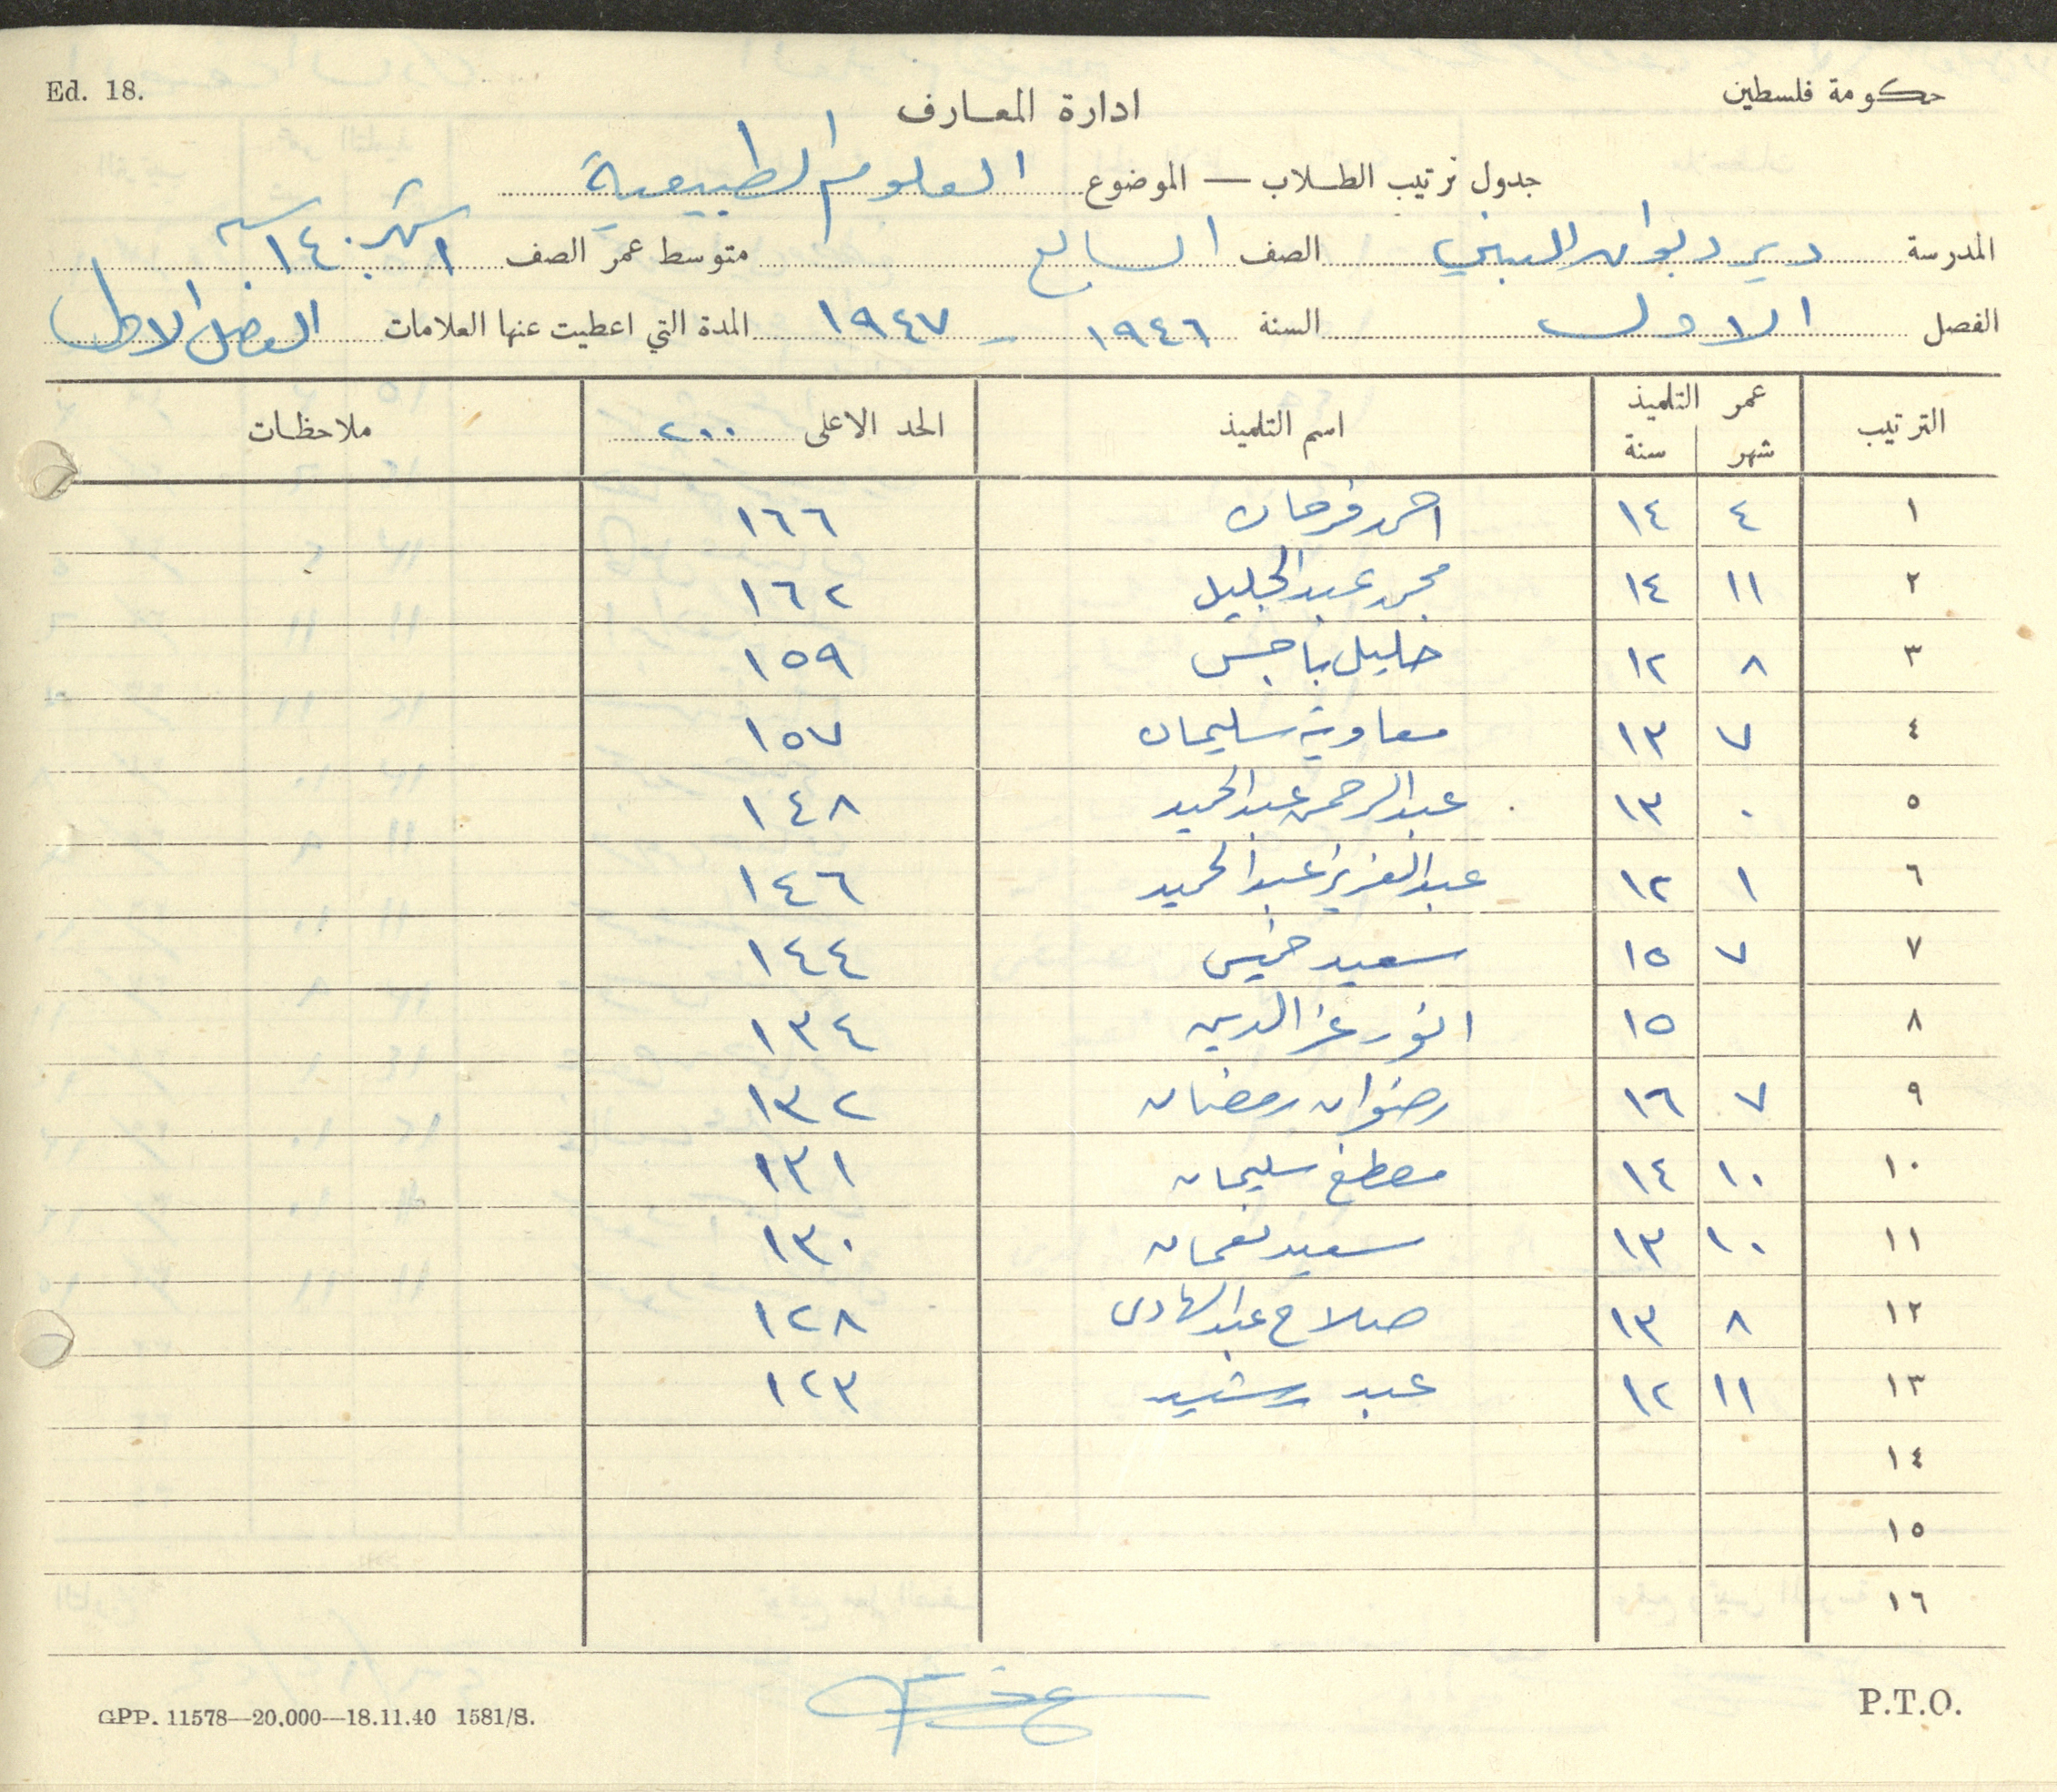 Ed. 18.
حكومة فلسطين
ادارة المعارف
جدول ترتيب الطلاب — الموضوع العلوم الطبيعية
المدرسة دير ديوان للبنين الصف السابع متوسط عمر الصف ١ شهر ١٤ سنه
الفصل الاول السنة ١٩٤٦ - ١٩٤٧ المدة التي اعطيت عنها العلامات الفصل الاول
الترتيب عمر التلميذ شهر سنة اسم التلميذ الحد الاعلى ٢٠٠ ملاحظات
١ ٤ ١٤ احمد فرحان ١٦٦
٢ ١١ ١٤ محمد عبد الجليل ١٦٢
٣ ٨ ١٢ خليل باجس ١٥٩
٤ ٧ ١٣ معاوية سليمان ١٥٧
٥ ٠ ١٣ عبد الرحمن عبد الحميد ١٤٨
٦ ١ ١٢ عبد العزيز عبد الحميد ١٤٦
٧ ٧ ١٥ سعيد خميس ١٤٤
٨ ١٥ انور عز الدين ١٣٤
٩ ٧ ١٦ رضوان رمضان ١٣٢
١٠ ١٠ ١٤ مصطفى سليمان ١٣١
١١ ١٠ ١٣ سعيد نعمان ١٣٠
١٢ ٨ ١٣ صلاح عبد الهادي ١٢٨
١٣ ١١ ١٢ عبد رشيد ١٢٣
١٤
١٥
١٦
GPP. 11578—20,000—18.11.40 1581/S.
P.T.O.